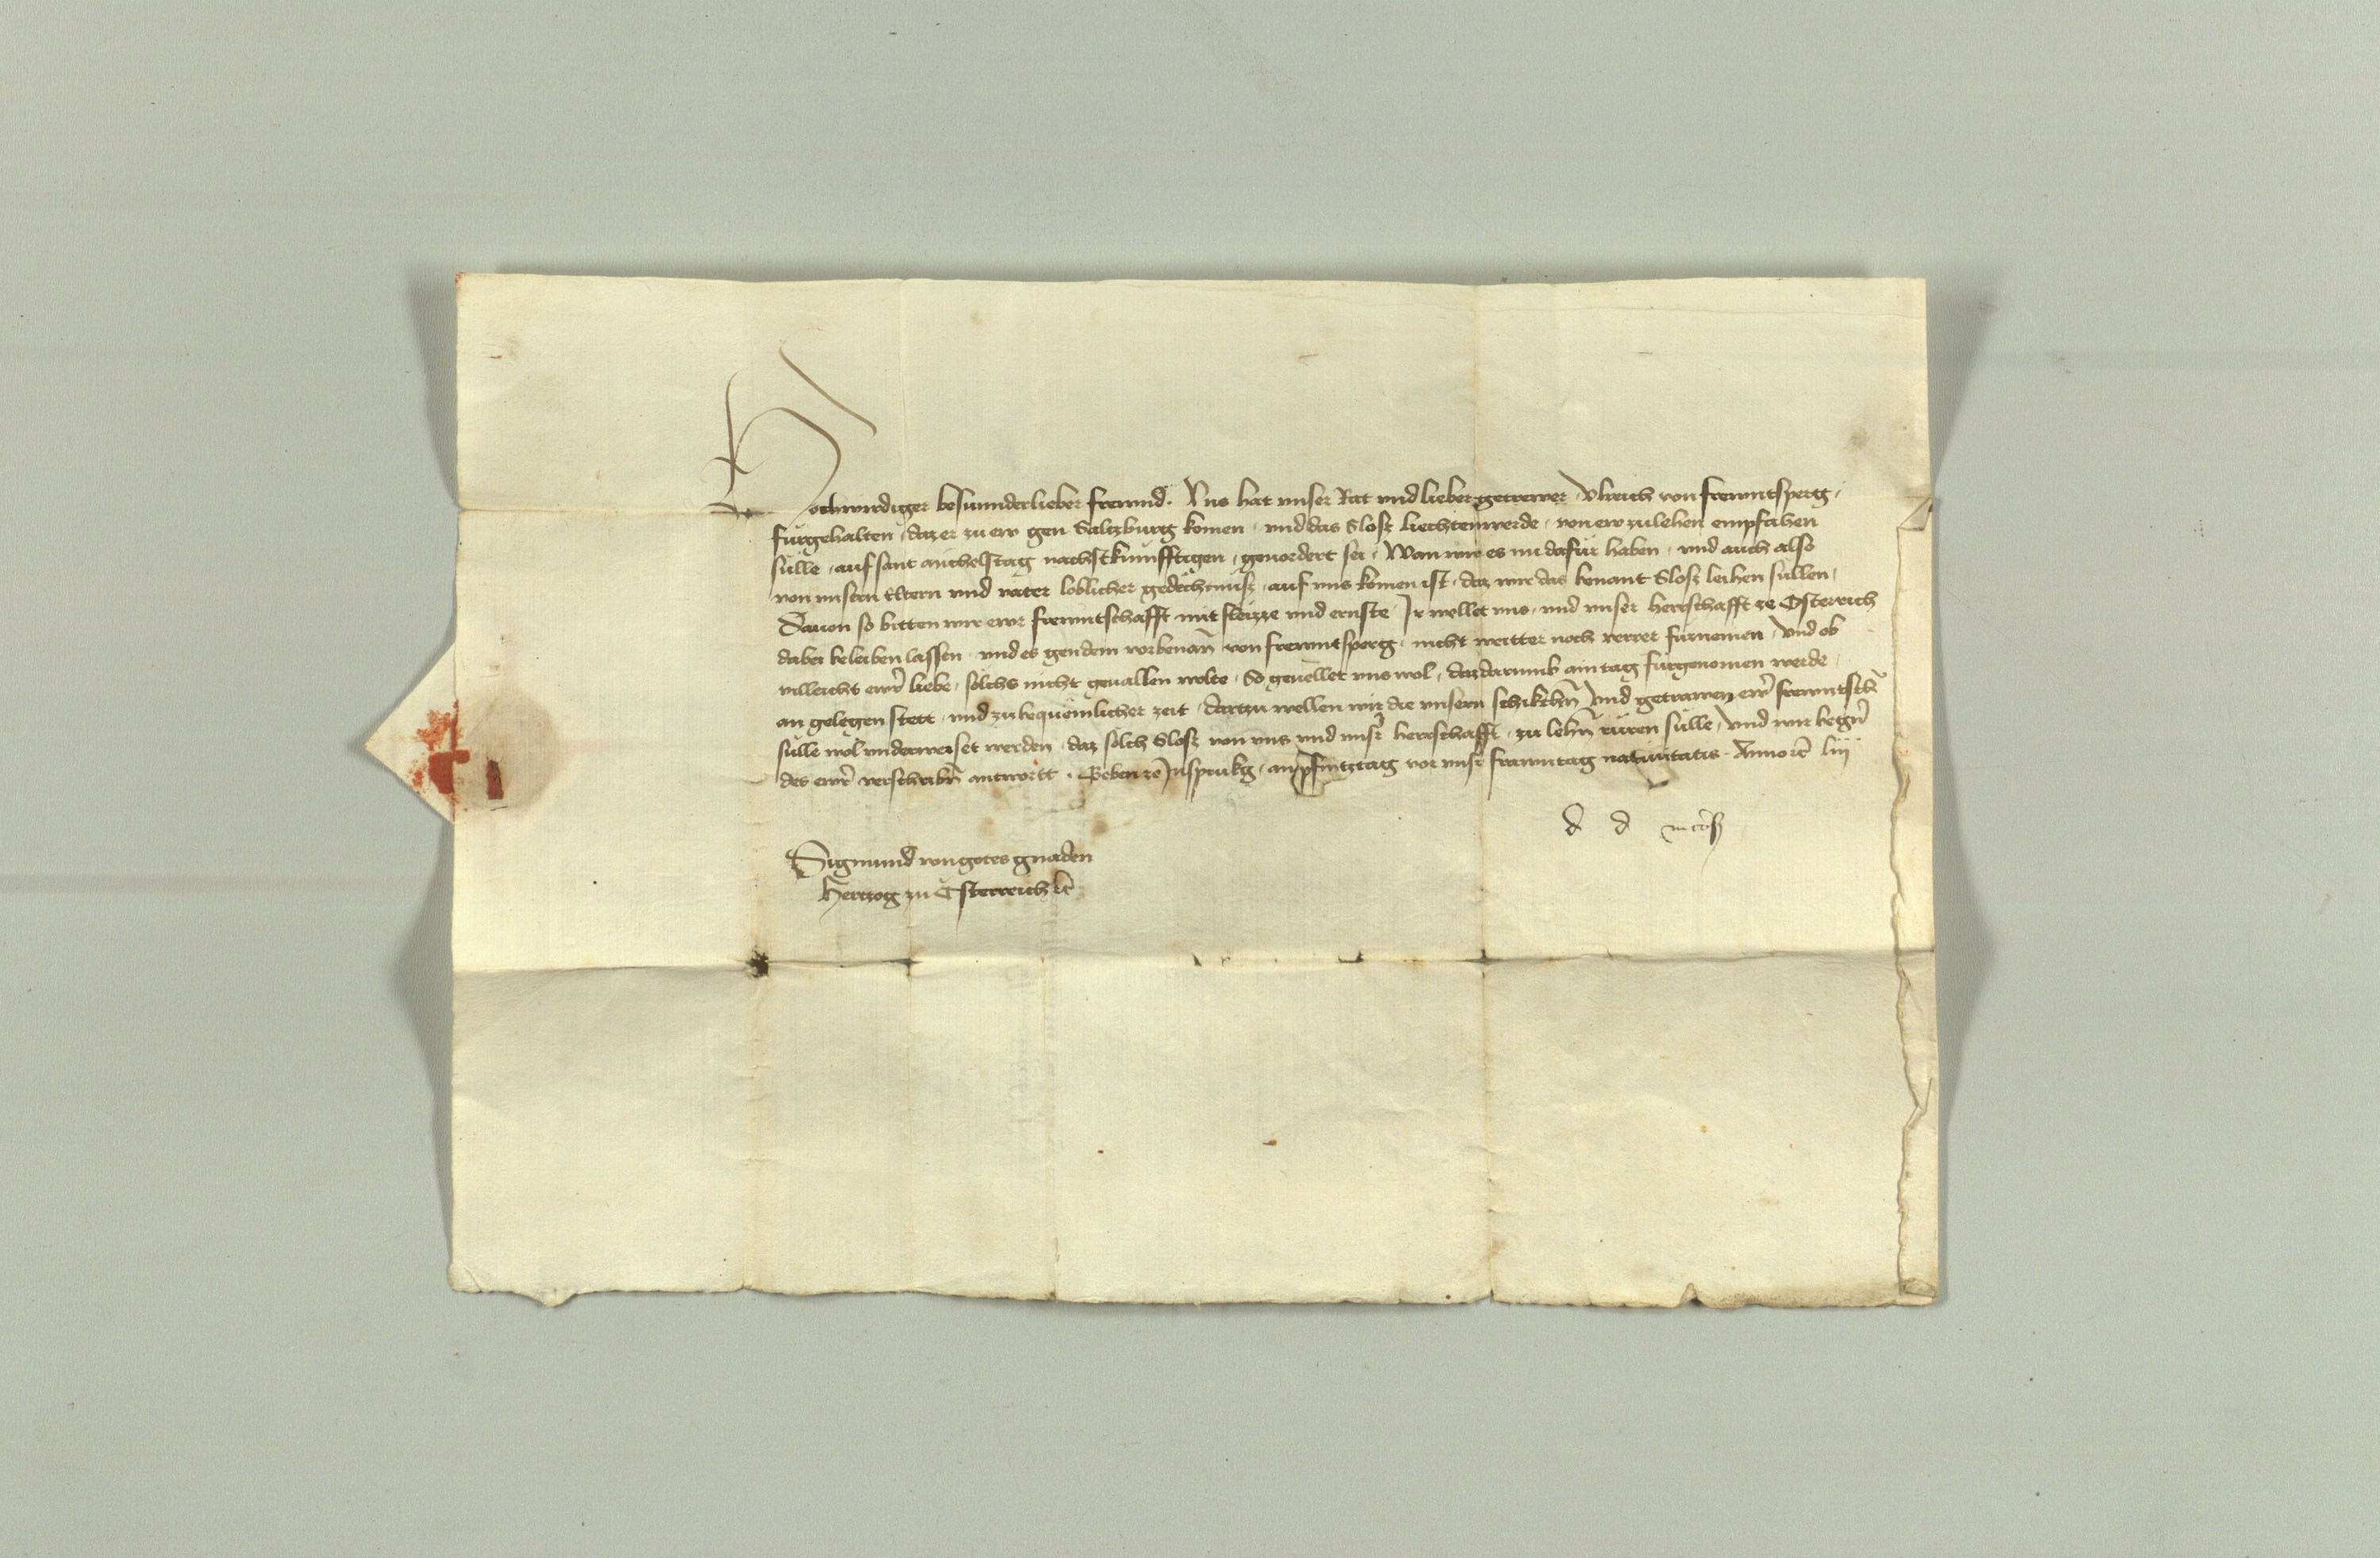 Hochwirdiger besunnderlieber frewnd. Uns hat unser Rat und lieber getrewer Ulreich von frewntsperg,
fürgehalten, daz er zu ew gen Saltzburg komen, und das Slosz Liechtenwerde, von ew zu lehen empfahen
sülle, auf sant michelstag nachstkunfftigen, geuordert sei, Wan wir es nu dafür haben, und auch also
von unsern Eltern und vater loblicher gedechtnüsz, auf uns komen ist, daz wir das benant Slosz leihen süllen,
Dauon so bitten wir ewr frewntschafft mit fleizze und ernste, Ir wellet uns, und unser herrschafft ze Österreich
dabei beleiben lassen, und es gen dem vorbenan̄ von frewntsperg, nicht weitter noch verrer fürnemen, Und ob
villeicht ewr̄ liebe, sölchs nicht geuallen wolte, So geuellet uns wol, daz darumb ain tag fürgenomen werde,
an gelegen stett, und zu bequemlicher zeit, dartzu wellen wir die unsern schikchn̄ Und getrawen ewr̄ frewntsch̄
sülle wol underweiset werden, daz sölch Slosz von uns und unsr̄ herrschafft, zu lehn̄ rüren sülle, Und wir begern̄
des ewr̄ verschribn̄ antwortt. Geben ze Insprukg, an Phintztag vor unsr̄ frawntag natiuitatis. Anno etc̄ liij
d d
Sigmund von gotes gnaden
Hertzog zu Österreich etc̄